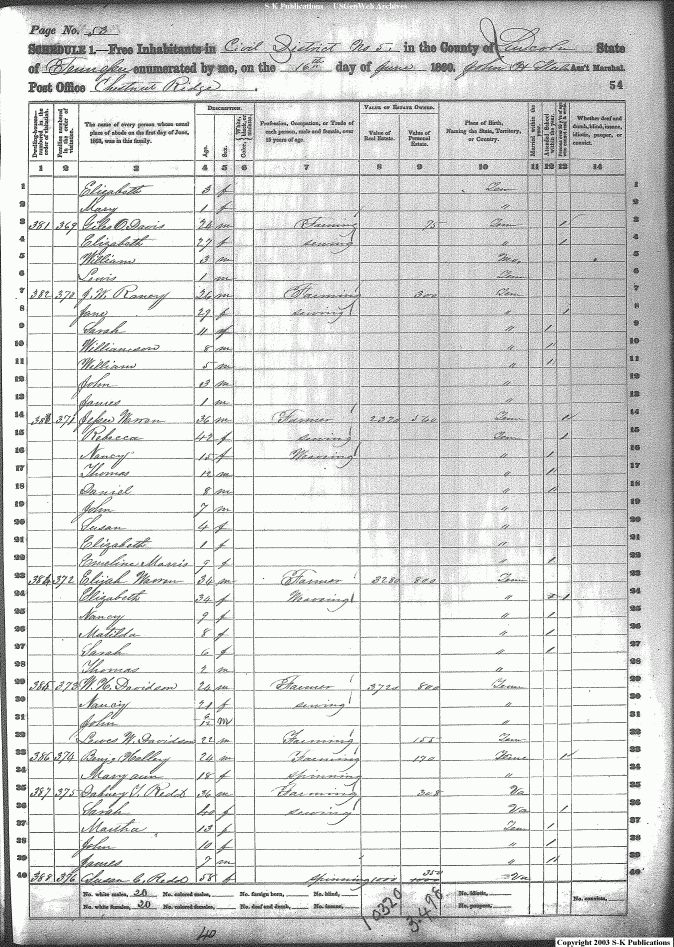 S-K Publications - USGenWeb Archives
Page No. 53
SCHEDULE 1.—Free Inhabitants in Civil District No 5. in the County of Lincoln State
of Tennessee enumerated by me, on the 16th day of June 1860. John H Ass't Marshal.
Post Office Chestnut Ridge. 54
DESCRIPTION. VALUE OF ESTATE OWNED.
Dwelling-houses numbered in the order of visitation.
Families numbered in the order of visitation.
The name of every person whose usual place of abode on the first day of June, 1860, was in this family.
Age.
Sex.
Color, White, black, or mulatto.
Profession, Occupation, or Trade of each person, male and female, over 15 years of age.
Value of Real Estate.
Value of Personal Estate.
Place of Birth, Naming the State, Territory, or Country.
Married within the year.
Attended School within the year.
Whether deaf and dumb, blind, insane, idiotic, pauper, or convict.
1 2 3 4 5 6 7 8 9 10 11 12 13 14
1 Elizabeth 3 f Ten 1
2 Mary 1 f " 2
3 381 369 Giles D Davis 24 m Farming 75 Ten 1 3
4 Elizabeth 27 f sewing " 1 4
5 William 3 m Mo. 5
6 Lewis 1 m Ten 6
7 382 370 J. W. Raney 36 m Farming 300 Ten 7
8 Jane 29 f sewing " 1 8
9 Sarah 11 f " 1 9
10 Williamson 8 m " 1 10
11 William 5 m " 1 11
12 John 3 m " 12
13 James 1 m " 13
14 383 371 Jesse Moran 36 m Farmer 2320 560 Ten 1 14
15 Rebecca 42 f sewing Ten 1 15
16 Nancy 15 f Weaving " 1 16
17 Thomas 12 m " 1 17
18 Daniel 8 m " 1 18
19 John 7 m " 19
20 Susan 4 f " 20
21 Elizabeth 1 f " 21
22 Emeline Morris 9 f " 1 22
23 384 372 Elijah Moran 34 m Farmer 3280 800 Ten 23
24 Elizabeth 34 f Weaving " 1 24
25 Nancy 9 f " 1 25
26 Matilda 8 f " 1 26
27 Sarah 6 f " 1 27
28 Thomas 2 m " 28
29 385 373 W. H. Davidson 24 m Farmer 3720 800 Ten 29
30 Nancy 21 f sewing " 30
31 John m " 31
32 Lewis W. Davidson 22 m Farming 155 Ten 32
33 386 374 Benj. Kelley 24 m Farming 170 1 33
34 Mary ann 18 f spinning " 34
35 387 375 Dabney T. Redd 36 m Farming 308 Va 35
36 Sarah 40 f sewing Va 1 36
37 Martha 13 f Ten 1 37
38 John 10 f " 1 38
39 James 7 m " 1 39
40 388 376 C. Redd 58 f spinning 1000 350 1000 Va 40
No. white males, 20 No. colored males, No. foreign born, No. blind, No. idiotic,
No. white females, 20 No. colored females, No. deaf and dumb, No. insane, No. paupers, No. convicts,
40 10320 3.498
Copyright 2003 S-K Publications